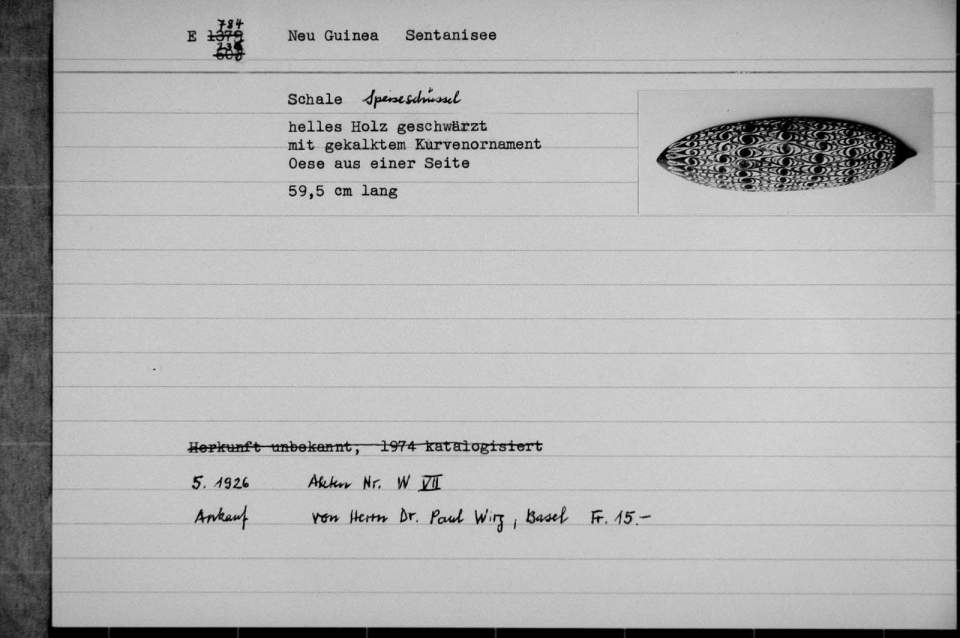 784
E 1379 Neu Guinea Sentanisee
Schale Speiseschüssel
helles Holz geschwärzt
mit gekalktem Kurvenornament
Oese aus einer Seite
59,5 cm lang
Herkunft unbekannt, 1974 katalogisiert
5. 1926 Akten Nr. W VII
Ankauf von Herrn Dr. Paul Wirz, Basel Fr. 15.-